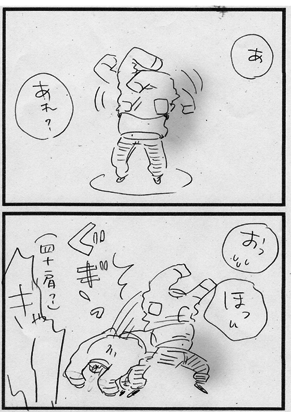 あ
あれ？
おっ
ほっ
ぐぎっ
(四十肩？)
ぎゃー